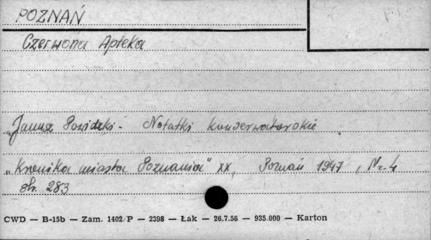 POZNAŃ
Czerwona Apteka
Notatki konserwatorskie
„Kronika miasta Poznania" XX, Poznań 1947, Nr. 4
str. 283
CWD — B-15b — Zam. 1402/P — 2398 — Łak — 26.7.56 — 935.000 — Karton